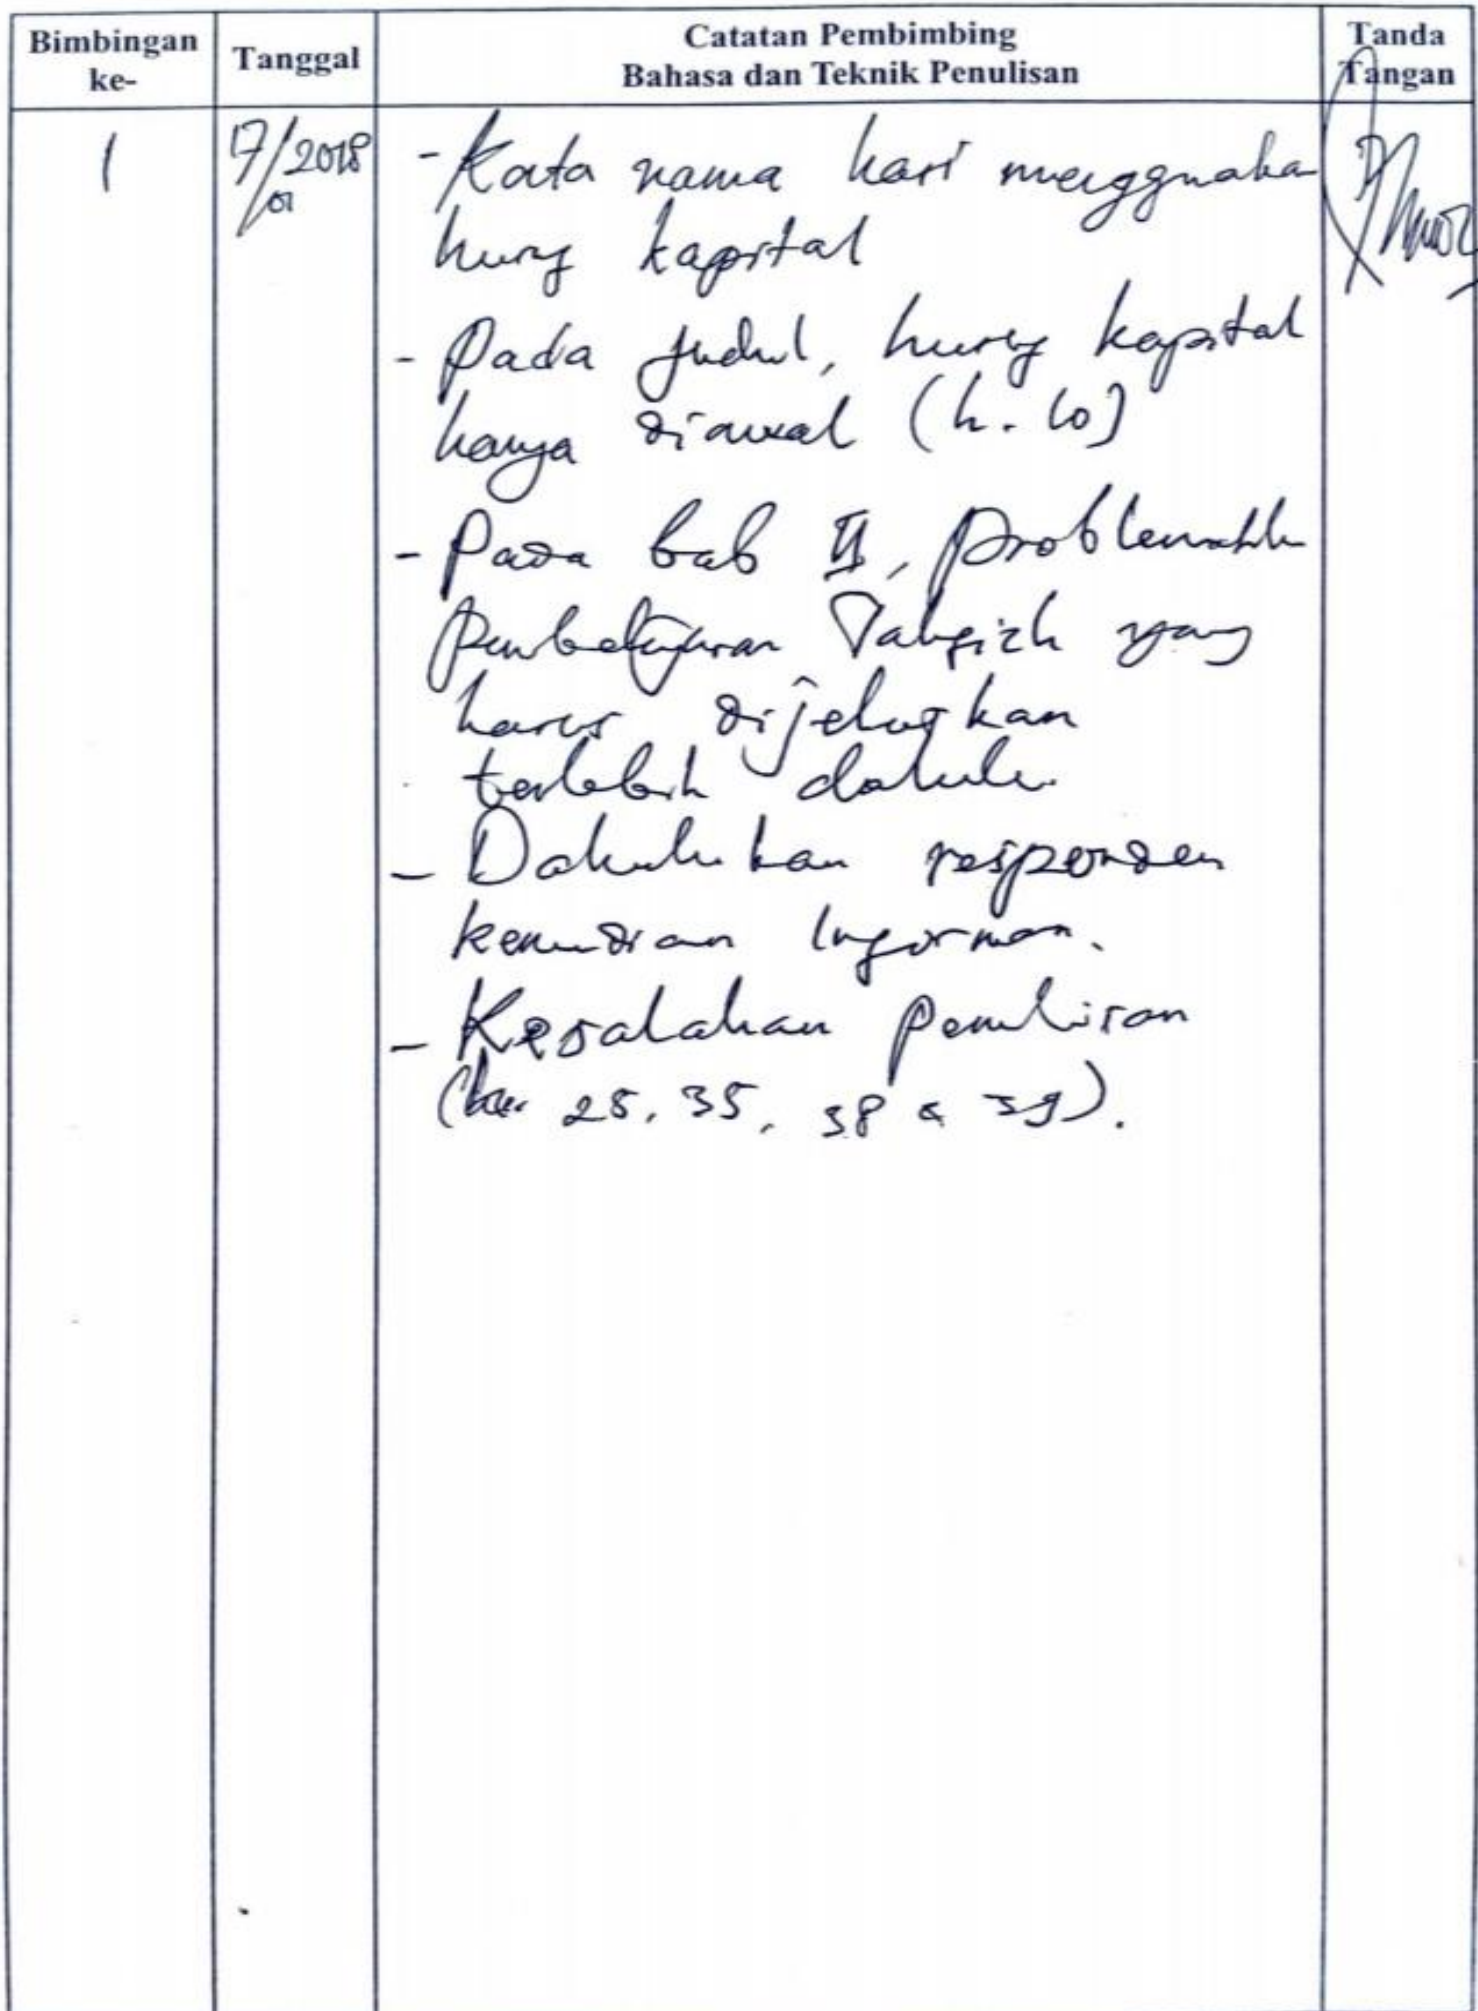 Bimbingan ke-
Tanggal
Catatan Pembimbing
Bahasa dan Teknik Penulisan
Tanda Tangan
1
17/01 2018
- Kata nama hari menggunaka
huruf kapital
- Pada judul, huruf kapital
hanya diawal (h. 10)
- Pada bab II, problematik
pembelajaran Tahfizh yang
harus dijelaskan
terlebih dahulu.
- Dahulukan responden
kemudian Informan.
- Kesalahan penulisan
25, 35, 38 & 39).